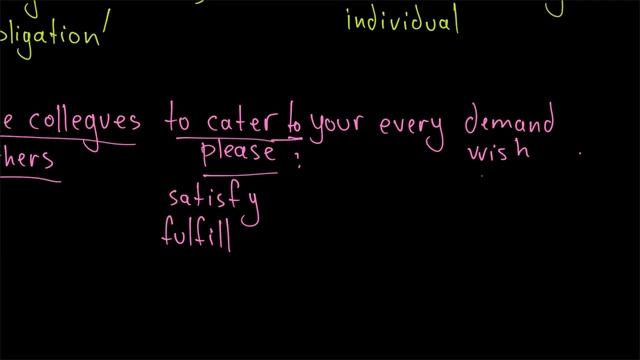 individual
oligation'
e collegues to cater to your every demand
hers please : wish .
satisfy
fulfill